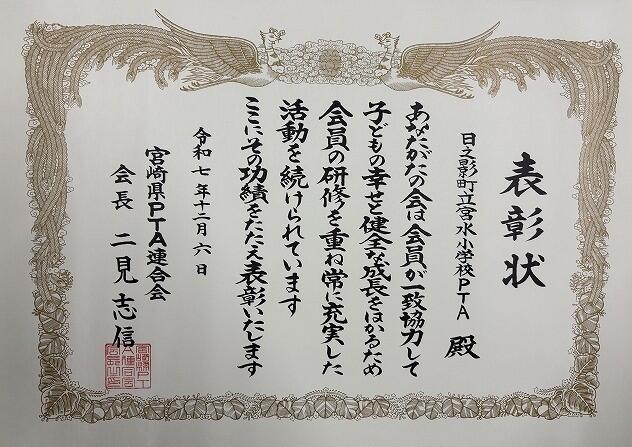 表彰状
日之影町立宮水小学校PTA 殿
あなたがたの会は会員が一致協力して
子どもの幸せと健全な成長をはかるため
会員の研修を重ね常に充実した
活動を続けられています
ここにその功績をたたえ表彰いたします
令和七年十二月六日
宮崎県PTA連合会
会長 二見志信